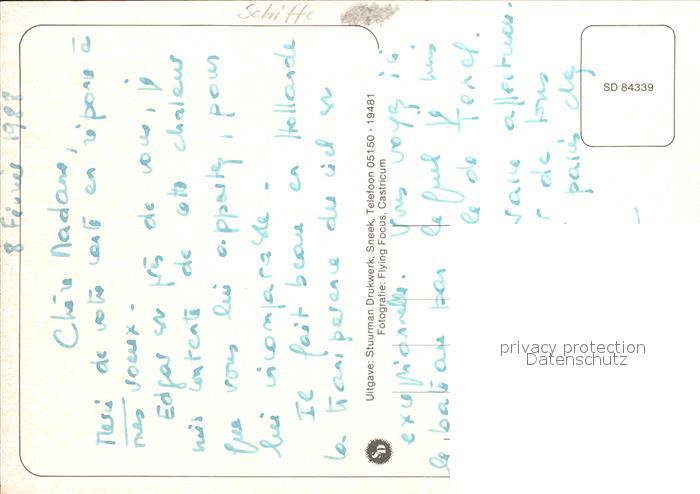 Schiffe
8 Février 1988
Chère Madame,
Merci de votre carte en réponse à
mes voeux.
Edgar est près de vous, je
suis contente de cette chaleur
que vous lui apportez, pour
lui incomparable.
Il fait beau en Hollande
la transparence du ciel est
exceptionnelle. Vous voyez ici
le bateau par lequel
de Texel.
de tous
Uitgave: Stuurman Drukwerk, Sneek, Telefoon 05150 - 19481
Fotografie: Flying Focus, Castricum
SD
SD 84339
privacy protection
Datenschutz